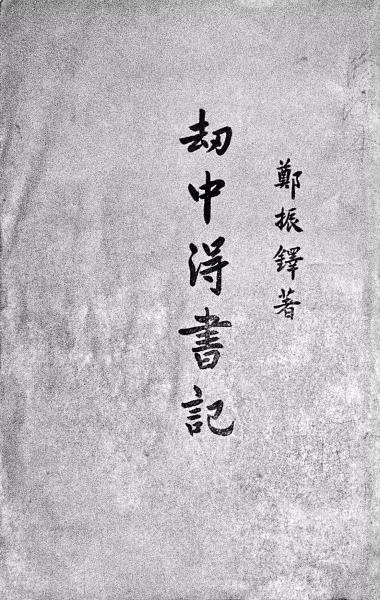 鄭振鐸著
刧中得書記